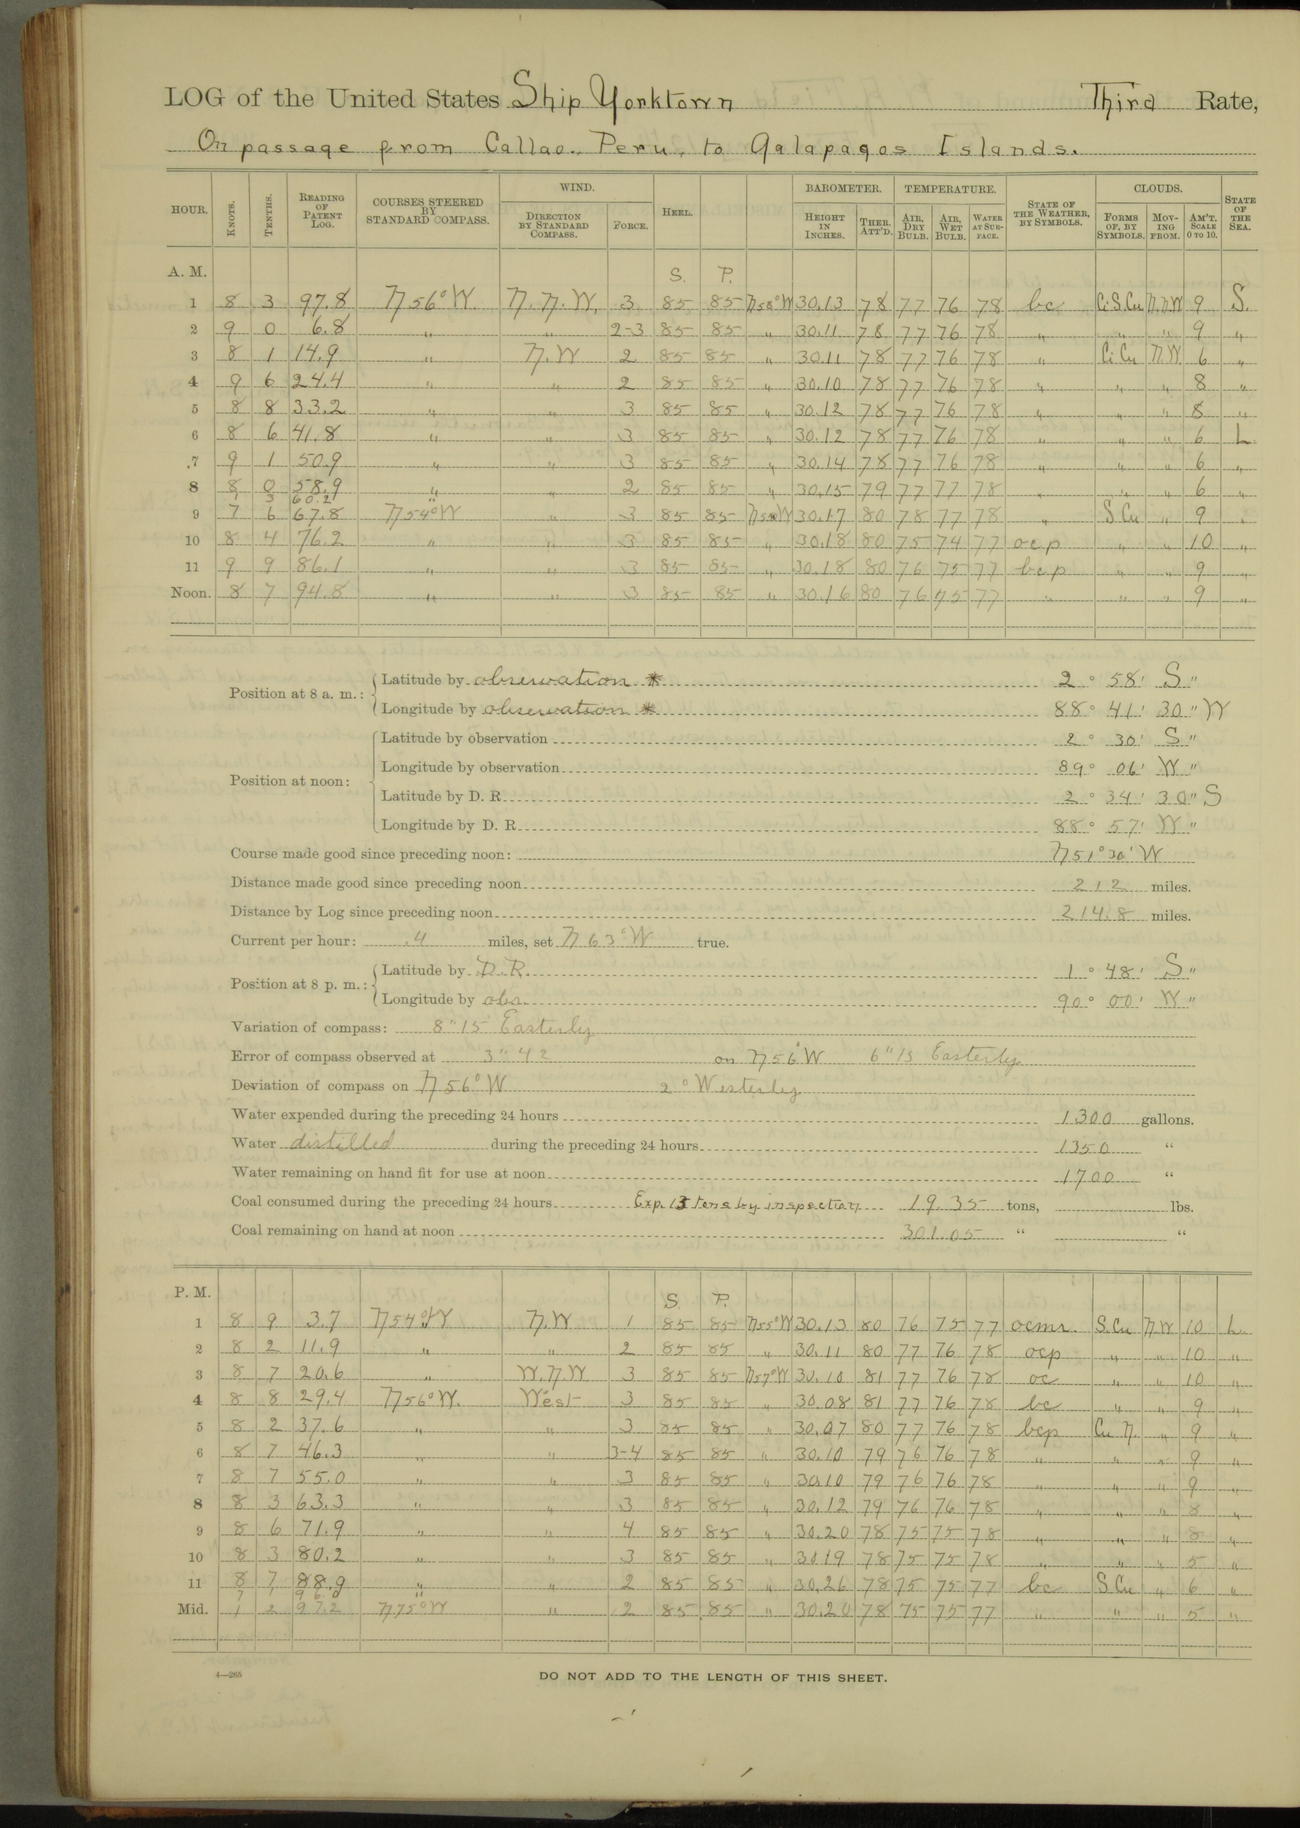 LOG of the United States Ship Yorktown Third Rate,
On passage from Callao, Peru, to Galapagos Islands.
HOUR. KNOTS. TENTHS. READING OF PATENT LOG. COURSES STEERED BY STANDARD COMPASS. WIND. DIRECTION BY STANDARD COMPASS. FORCE. HEEL. BAROMETER. HEIGHT IN INCHES. THER. ATT'D. TEMPERATURE. AIR, DRY BULB. AIR, WET BULB. WATER AT SURFACE. STATE OF THE WEATHER, BY SYMBOLS. CLOUDS. FORMS OF, BY SYMBOLS. MOVING FROM. AM'T. SCALE 0 TO 10. STATE OF THE SEA.
A. M. S. P.
1 8 3 97.8 N 56° W. N. N. W. 3 85 85 N 58° W 30.13 78 77 76 78 bc Ci.S.Cu N.N.W 9 S.
2 9 0 6.8 " " 2-3 85 85 " 30.11 78 77 76 78 " " " 9 "
3 8 1 14.9 " N. W 2 85 85 " 30.11 78 77 76 78 " Ci Cu N.W 6 "
4 9 6 24.4 " " 2 85 85 " 30.10 78 77 76 78 " " " 8 "
5 8 8 33.2 " " 3 85 85 " 30.12 78 77 76 78 " " " 8 "
6 8 6 41.8 " " 3 85 85 " 30.12 78 77 76 78 " " " 6 L
7 9 1 50.9 " " 3 85 85 " 30.14 78 77 76 78 " " " 6 "
8 8 0 58.9 " " 2 85 85 " 30.15 79 77 77 78 " " " 6 "
1 3 60.2 "
9 7 6 67.8 N 54° W " 3 85 85 30.17 80 78 77 78 " S Cu " 9 "
10 8 4 76.2 " " 3 85 85 " 30.18 80 75 74 77 ocp " " 10 "
11 9 9 86.1 " " 3 85 85 " 30.18 80 76 75 77 bcp " " 9 "
Noon. 8 7 94.8 " " 3 85 85 " 30.16 80 76 75 77 " " " 9 "
Position at 8 a. m.: Latitude by observation * 2° 58' S "
Longitude by observation * 88° 41' 30" W
Position at noon: Latitude by observation 2° 30' S "
Longitude by observation 89° 06' W "
Latitude by D. R. 2° 34' 30" S
Longitude by D. R. 88° 57' W "
Course made good since preceding noon: N 51° 30' W
Distance made good since preceding noon 212 miles.
Distance by Log since preceding noon 214.8 miles.
Current per hour: .4 miles, set N 63° W true.
Position at 8 p. m.: Latitude by D.R. 1° 48' S "
Longitude by obs. 90° 00' W "
Variation of compass: 8° 15 Easterly
Error of compass observed at 3" 42 on N 56° W 6° 15 Easterly
Deviation of compass on N 56° W 2° Westerly
Water expended during the preceding 24 hours 1300 gallons.
Water distilled during the preceding 24 hours 1350 "
Water remaining on hand fit for use at noon 1700 "
Coal consumed during the preceding 24 hours Exp. 13 tons by inspection 19.35 tons, lbs.
Coal remaining on hand at noon 301.05 " "
P. M. S. P.
1 8 9 3.7 N 54° W N. W 1 85 85 N 55° W 30.13 80 76 75 77 ocmr. S.Cu N W 10 L.
2 8 2 11.9 " " 2 85 85 " 30.11 80 77 76 78 ocp " " 10 "
3 8 7 20.6 " W. N. W 3 85 85 N 57° W 30.10 81 77 76 78 oc " " 10 "
4 8 8 29.4 N 56° W. West 3 85 85 " 30.08 81 77 76 78 bc " " 9 "
5 8 2 37.6 " " 3 85 85 " 30.07 80 77 76 78 bcp Cu N. " 9 "
6 8 7 46.3 " " 3-4 85 85 " 30.10 79 76 76 78 " " " 9 "
7 8 7 55.0 " " 3 85 85 " 30.10 79 76 76 78 " " " 9 "
8 8 3 63.3 " " 3 85 85 " 30.12 79 76 76 78 " " " 8 "
9 8 6 71.9 " " 4 85 85 " 30.20 78 75 75 78 " " " 8 "
10 8 3 80.2 " " 3 85 85 " 30.19 78 75 75 78 " " " 5 "
11 8 7 88.9 " " 2 85 85 " 30.26 78 75 75 77 bc S.Cu " 6 "
7 1 96.0 "
Mid. 1 2 97.2 N 75° W " 2 85 85 " 30.20 78 75 75 77 " " " 5 "
4—265
DO NOT ADD TO THE LENGTH OF THIS SHEET.